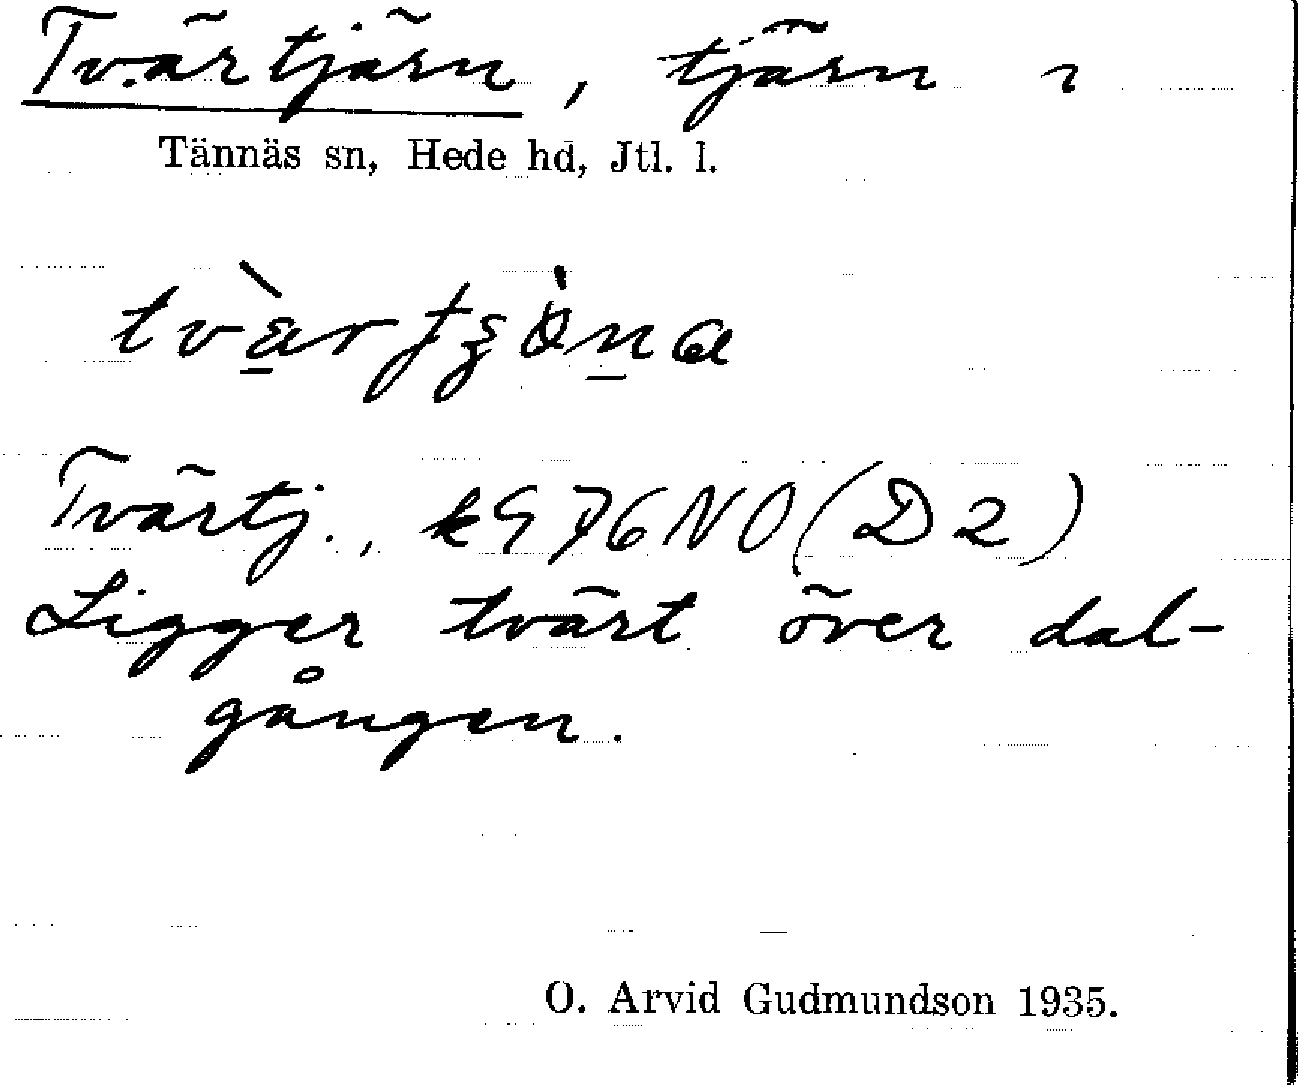 Tvärtjärn, tjärn i
Tännäs sn, Hede hd, Jtl. l.
Tvärtj., k976NO(D2)
Ligger tvärt över dal-
gången.
O. Arvid Gudmundson 1935.